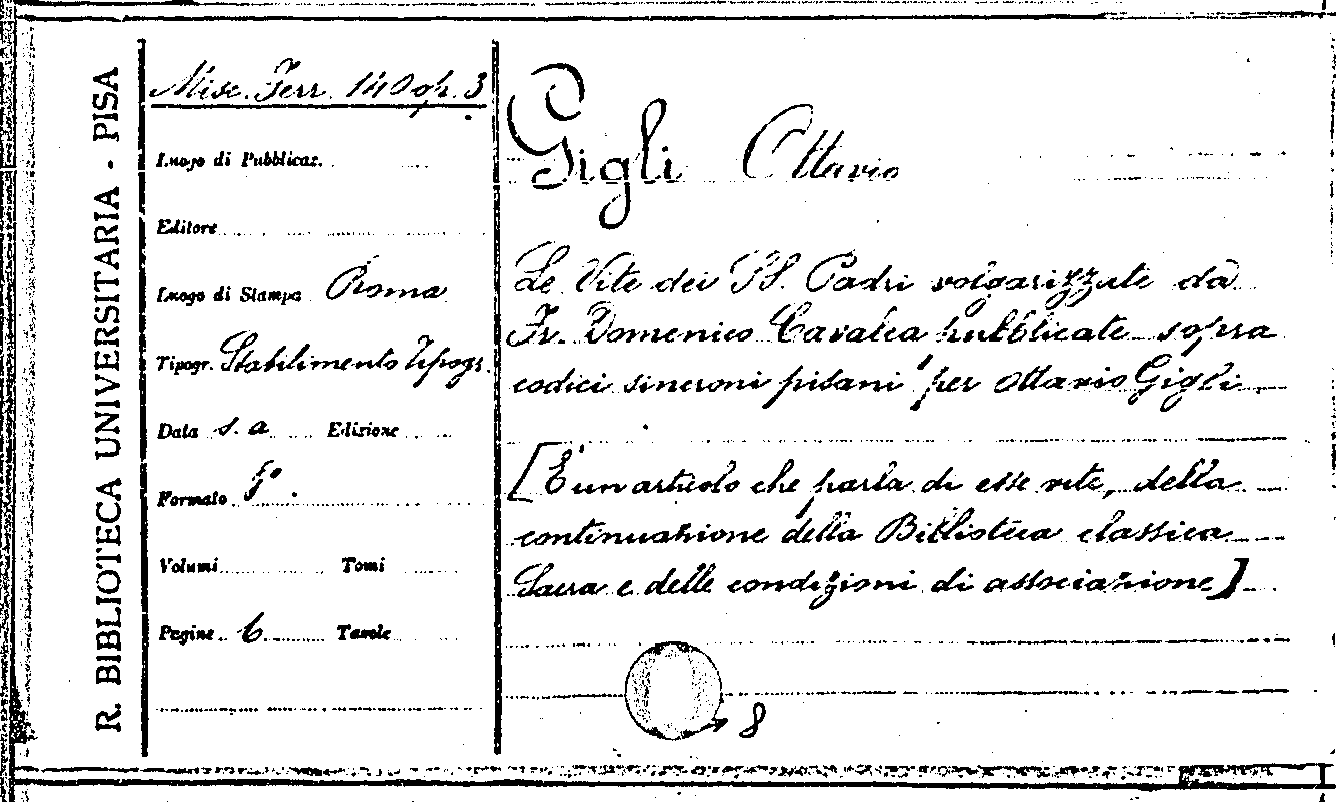 R. BIBLIOTECA UNIVERSITARIA - PISA
Misc. Ferr. 140 op. 3
Luogo di Pubblicaz.
Editore
Luogo di Stampa Roma
Tipogr. Stabilimento Tipogr.
Data s. a Edizione
Formato
Volumi Tomi
Pagine 6 Tavole
Gigli Ottavio
Le Vite dei SS. Padri volgarizzate da
Fr. Domenico Cavalca pubblicate sopra
codici sincroni pisani per Ottavio Gigli
[È un articolo che parla di esse vite, della
continuazione della Biblioteca classica
Sacra e delle condizioni di associazione]
8